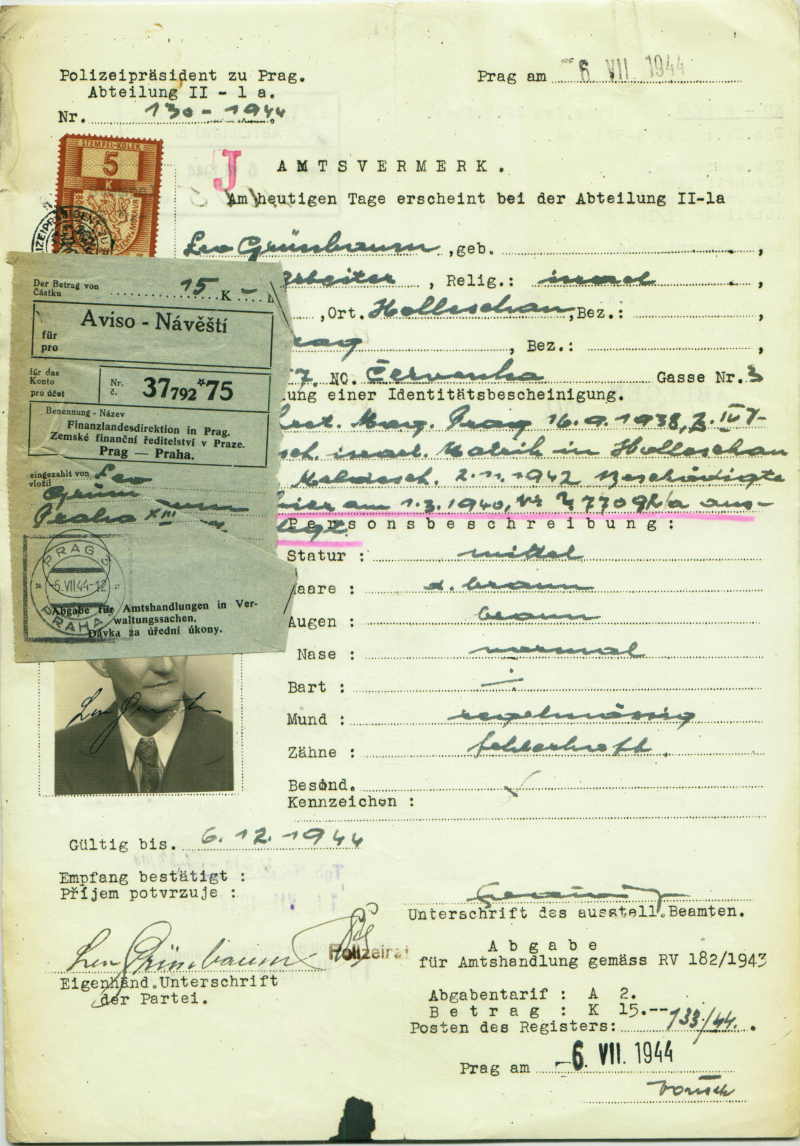 Polizeipräsident zu Prag.
Abteilung II - 1 a.
Nr. 130-1944
Prag am 6 VII 1944
STEMPEL-KOLEK
5
K
J
AMTSVERMERK.
Am heutigen Tage erscheint bei der Abteilung II-1a
Leo Grünbaum, geb.
Arbeiter, Relig.: israel.,
,Ort. Holleschau, Bez.: ,
Prag, Bez.: ,
7. NO. Červenka Gasse Nr. 3
lung einer Identitätsbescheinigung.
Mag. Prag 16.9.1938, Z. IV
israel. Matrik in Holleschau
Meldesch. 2.11.1942 Beschädigte
hier am 1.3.1940, 7709 aus-
Personsbeschreibung:
Statur : mittel
Haare : d. braun
Augen : braun
Nase : normal
Bart : -
Mund : regelmässig
Zähne : fehlerhaft.
Besond.
Kennzeichen :
Der Betrag von
Částku 15 K - h
Aviso - Návěští
für
pro
für das
Konto
pro účet
Nr.
č. 37792*75
Benennung - Název
Finanzlandesdirektion in Prag.
Zemské finanční ředitelství v Praze.
Prag — Praha.
eingezahlt von
vložil Leo
Grünbaum
Praha XIII
PRAG
-6.VII 44-12
PRAHA
Abgabe für Amtshandlungen in Ver-
waltungssachen.
Dávka za úřední úkony.
Gültig bis. 6.12.1944
Empfang bestätigt :
Příjem potvrzuje :
Leo Grünbaum
Polizeirat
Eigenhänd.Unterschrift
der Partei.
Unterschrift des ausstell.Beamten.
Abgabe
für Amtshandlung gemäss RV 182/1943
Abgabentarif : A 2.
Betrag : K 15.--
Posten des Registers: 133/44.
Prag am 6. VII. 1944